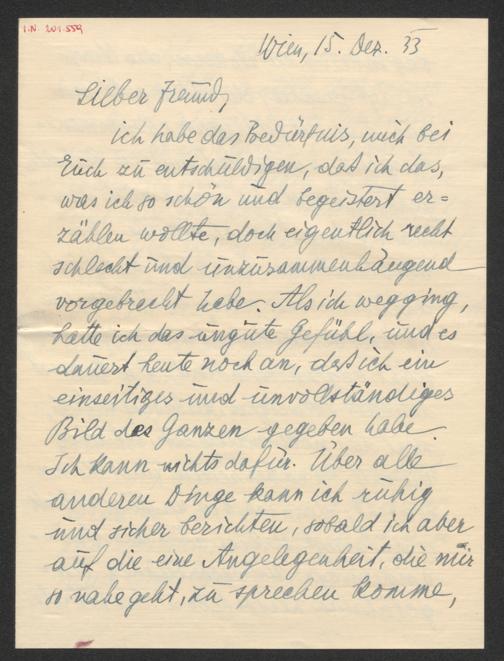 I.N. 201.559
Wien, 15. Dez. 33
Lieber Freund,
ich habe das Bedürfnis, mich bei
Euch zu entschuldigen, daß ich das,
was ich so schön und begeistert er=
zählen wollte, doch eigentlich recht
schlecht und unzusammenhängend
vorgebracht habe. Als ich wegging,
hatte ich das ungute Gefühl, und es
dauert heute noch an, daß ich ein
einseitiges und unvollständiges
Bild des Ganzen gegeben habe.
Ich kann nichts dafür. Über alle
anderen Dinge kann ich ruhig
und sicher berichten, sobald ich aber
auf die eine Angelegenheit, die mir
so nahe geht, zu sprechen komme,